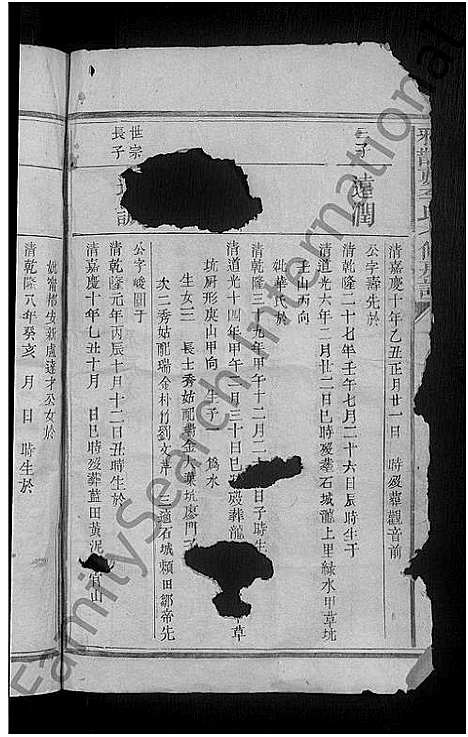 清嘉慶十年乙丑正月廿一日 時歿葬觀音前
三子 遠潤
公字壽先於
清乾隆二十七年壬午七月二十六日辰時生于
清道光六年二月廿二日巳時歿葬石城龍上里綠水甲草坑
壬山丙向
妣華氏於
清乾隆三十九年甲午十二月二 日子時生
清道光十四年甲午二月三十日巳 歿葬龍 草
坑廚形庚山甲向 生子 為水
生女三 長士秀姑配 金大葉坑廖門
次二秀姑配瑞金朴竹劉文 三適石城頰田鄒帝先
世宗
長子
公字峻圓于
清乾隆元年丙辰十月十二日丑時生於
清嘉慶十年乙丑十月 日巳時歿葬藍田黃泥 官山
安新處達才公女於
清乾隆八年癸亥 月 日 時生於
FamilySearch International